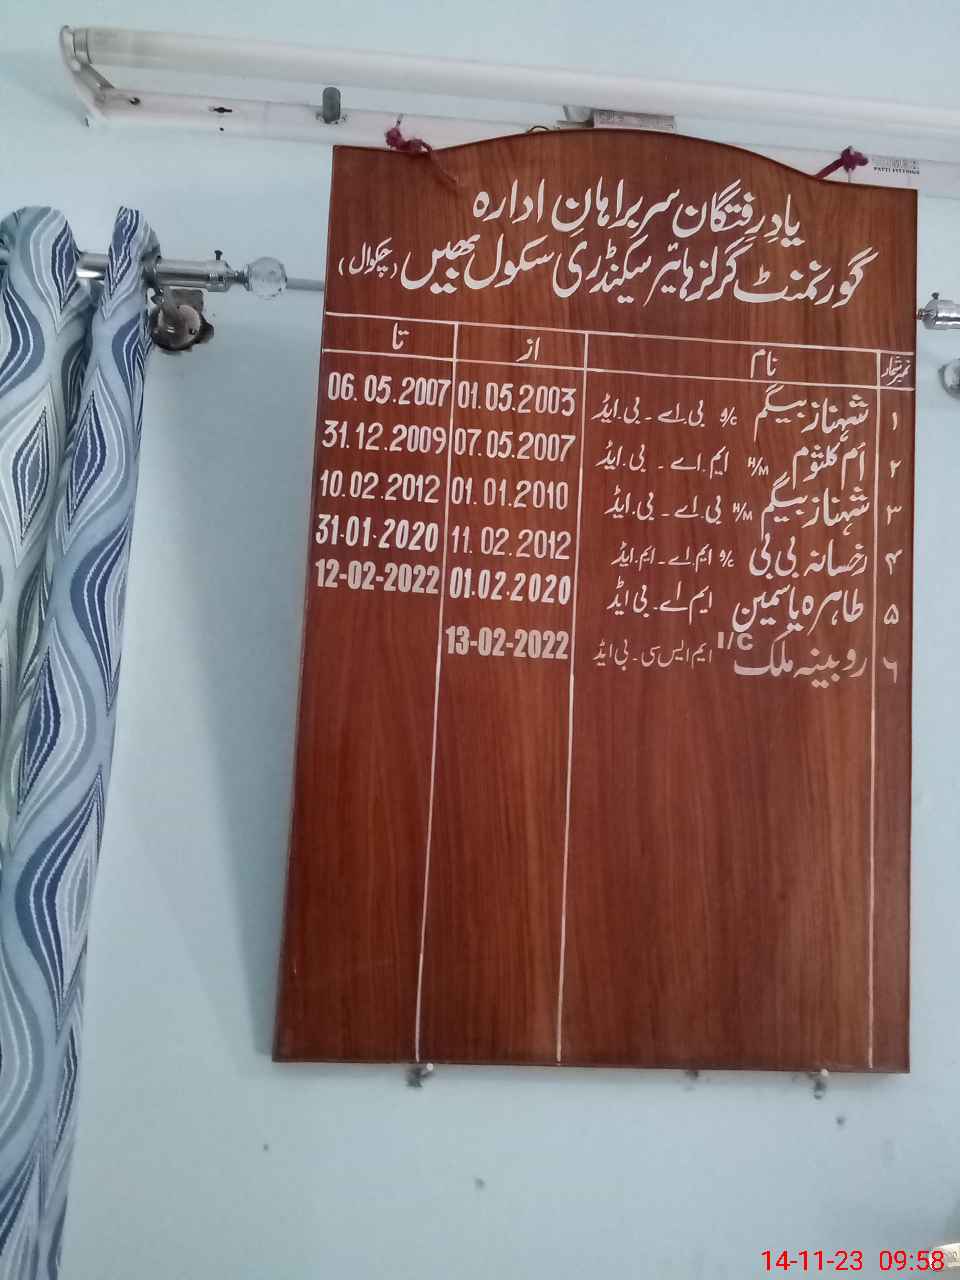 یادِ رفتگان سربراہانِ ادارہ
گورنمنٹ گرلز ہائیر سیکنڈری سکول بھیں (چکوال)
نمبر شمار نام از تا
۱ شہناز بیگم I/C بی۔اے۔ بی۔ایڈ 01.05.2003 06.05.2007
۲ اُم کلثوم H/M ایم۔اے۔ بی۔ایڈ 07.05.2007 31.12.2009
۳ شہناز بیگم H/M بی۔اے۔ بی۔ایڈ 01.01.2010 10.02.2012
۴ رخسانہ بی بی I/C ایم۔اے۔ ایم۔ایڈ 11.02.2012 31.01.2020
۵ طاہرہ یاسمین ایم اے۔ بی ایڈ 01.02.2020 12-02-2022
۶ روبینہ ملک I/C ایم ایس سی۔ بی ایڈ 13-02-2022
14-11-23 09:58